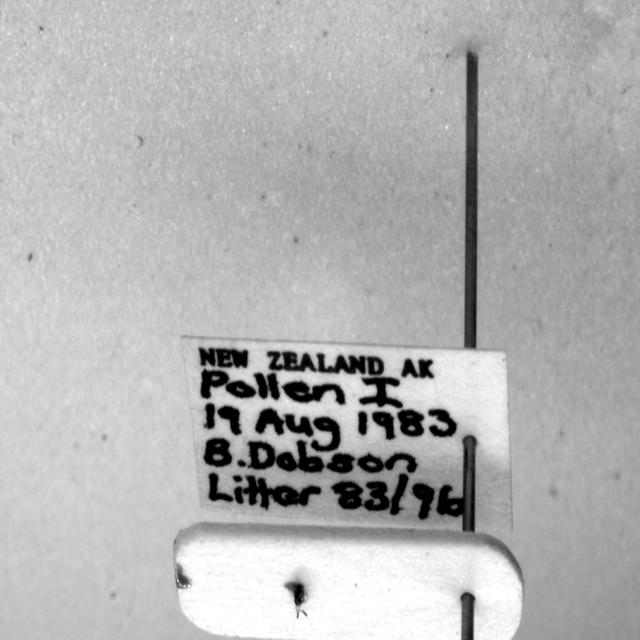 NEW ZEALAND AK
Pollen I
19 Aug 1983
B. Dobson
Litter 83/96